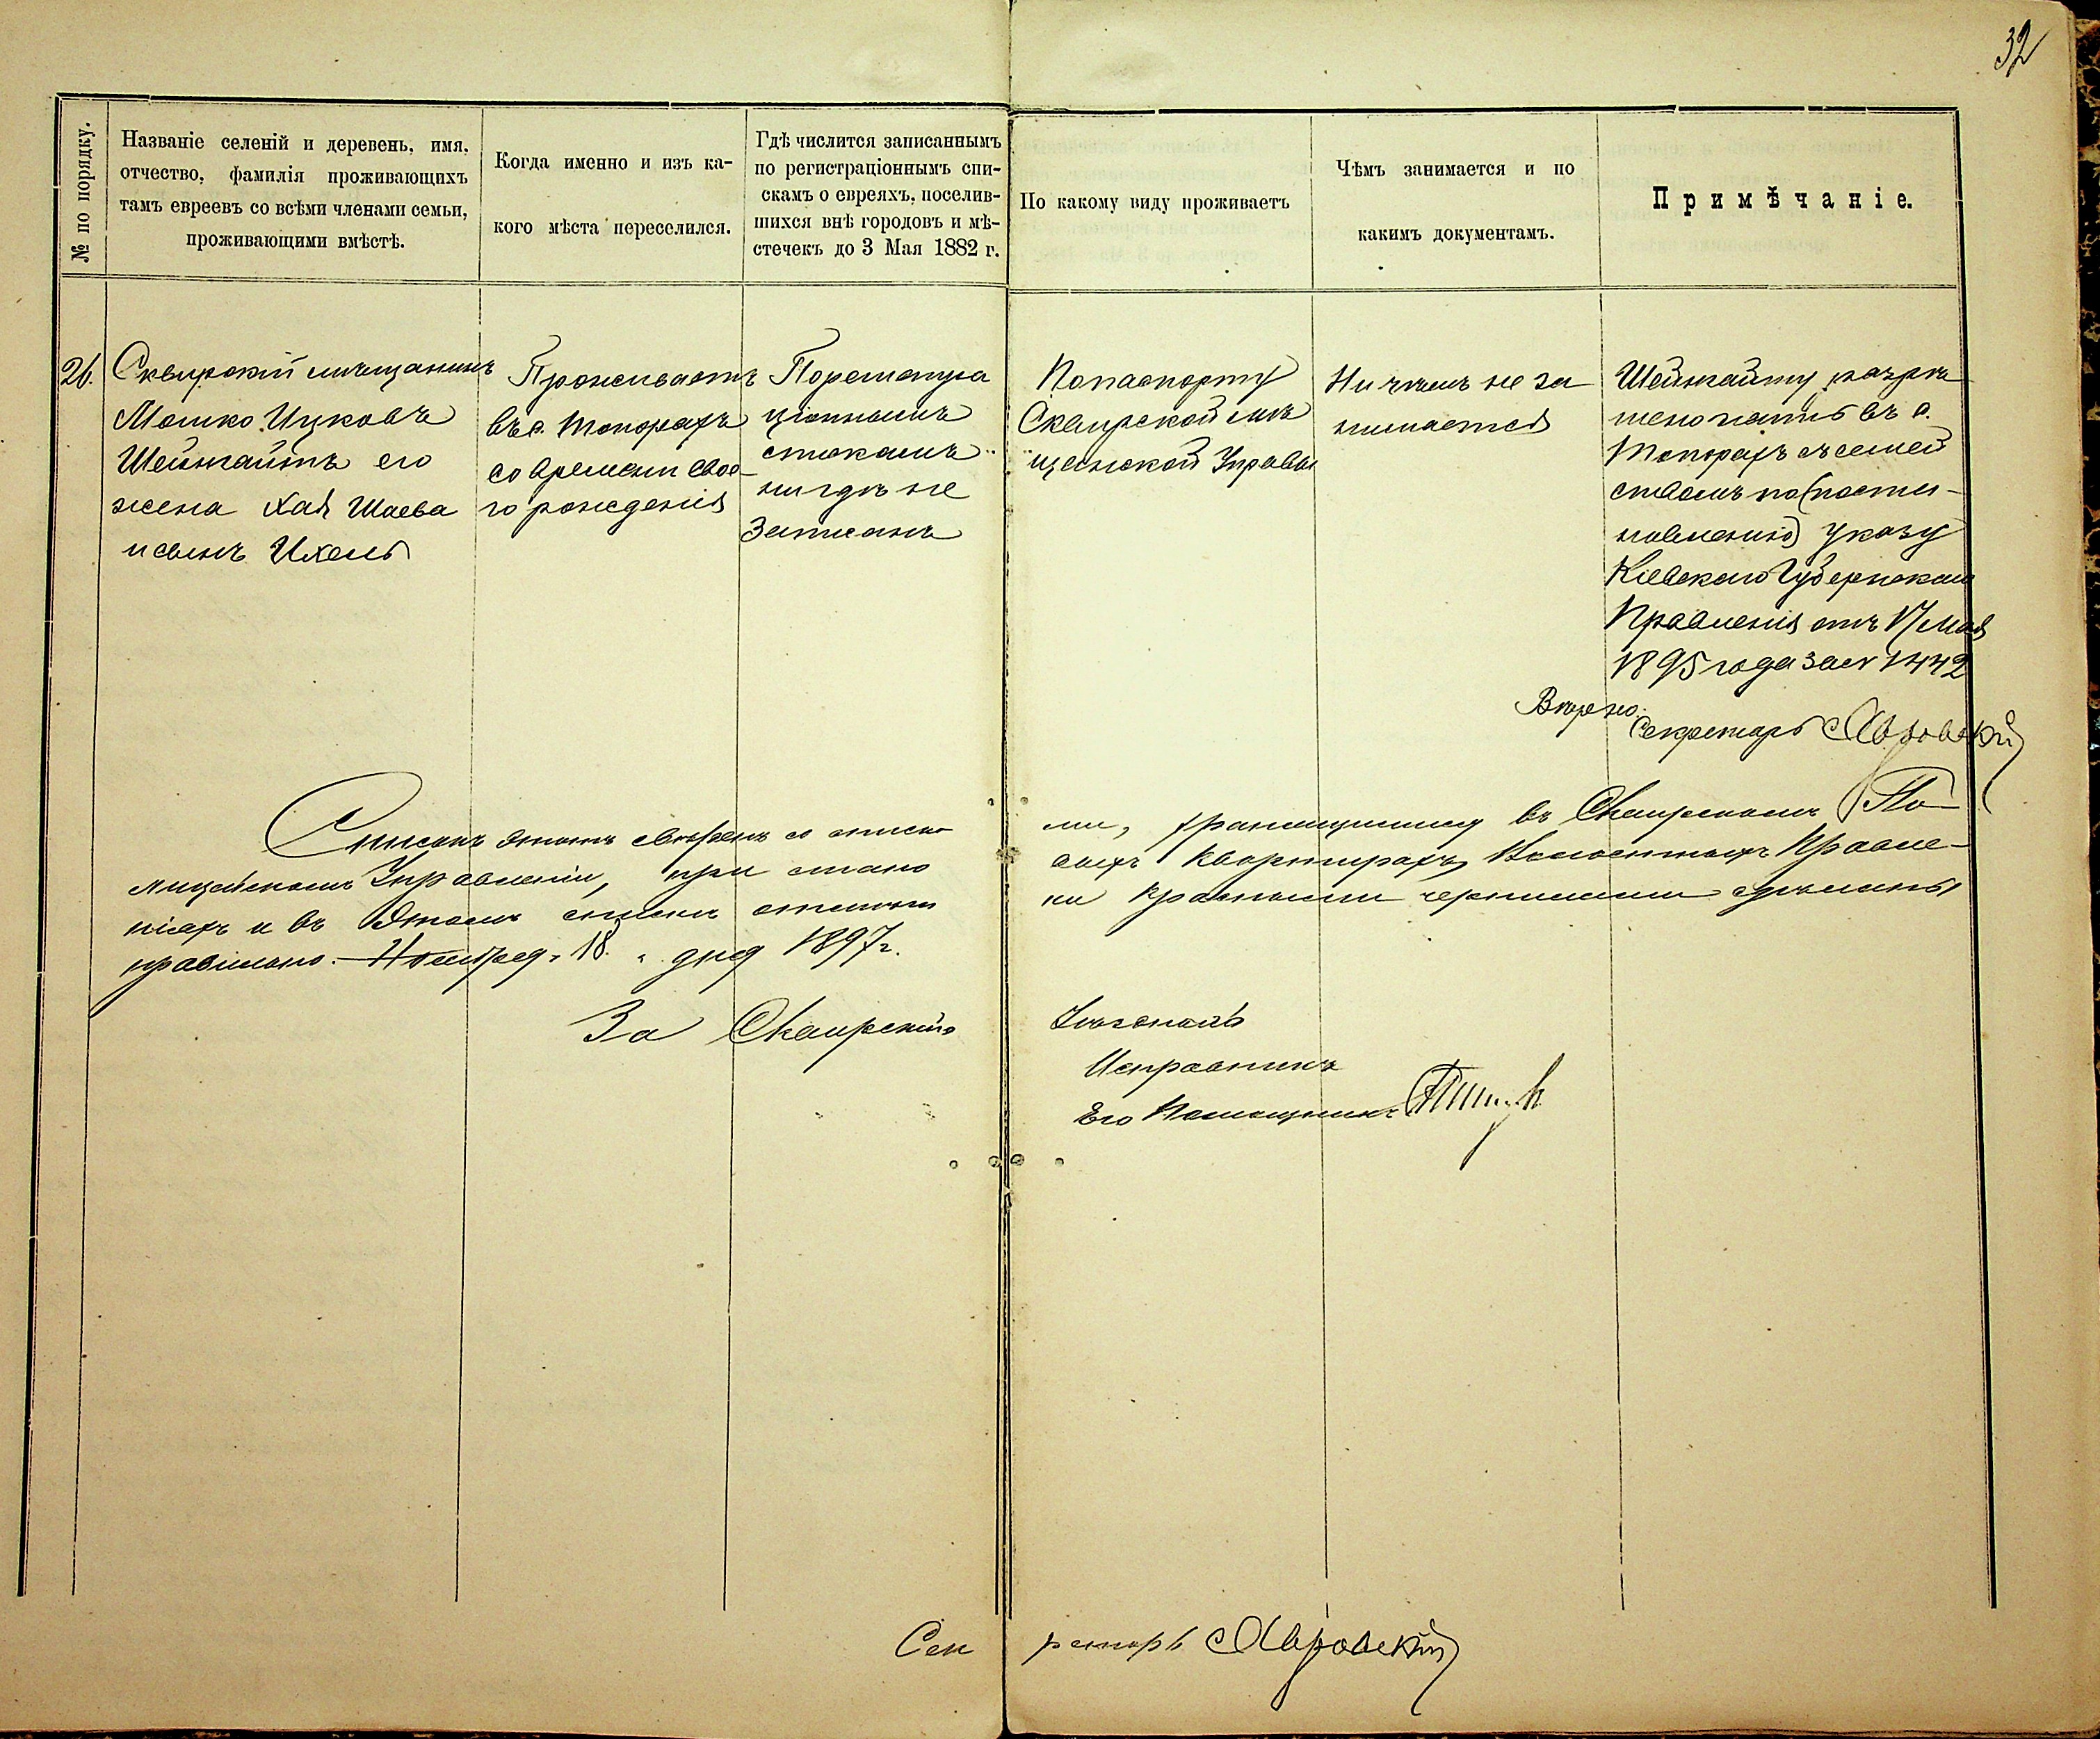 32
№ по порядку.
Названіе селеній и деревень, имя,
отчество, фамилія проживающихъ
тамъ евреевъ со всѣми членами семьи,
проживающими вмѣстѣ.
Когда именно и изъ ка-
кого мѣста переселился.
Гдѣ числится записаннымъ
по регистраціоннымъ спи-
скамъ о евреяхъ, поселив-
шихся внѣ городовъ и мѣ-
стечекъ до 3 Мая 1882 г.
По какому виду проживаетъ
Чѣмъ занимается и по
какимъ документамъ.
Примѣчаніе.
26.
Сквирскій мѣщанинъ
Мошко Ицковъ
Шейнгайтъ его
жена Хая Шаева
и сынъ Ихель
Проживаетъ
въ с. Топорахъ
со времени свое-
го рожденія
По регистра
ціоннымъ
спискамъ
нигдѣ не
Записанъ
По паспорту
Сквирской мѣ
щанской Управы
Ничѣмъ не за
нимается
Шейнгайту разрѣ
шено жить въ с.
Топорахъ съ семей
ствомъ по (поста-
новленію) указу
Кіевскаго Губернскаго
Правленія отъ 17 Мая
1895 года за № 1442
Вѣрно:
Секретарь
Списокъ этотъ свѣренъ со списка
ми, хранящимися въ Сквирскомъ По-
лицейскомъ Управленіи, при стано
выхъ квартирахъ, Волостныхъ Правле-
ніяхъ и въ этомъ списки отмѣт
ки красными чернилами сдѣланы
правильно. Ноября "18" дня 1897 г.
За Сквирскаго
Уѣзднаго
Исправника
Его Помощникъ
Сек ретарь